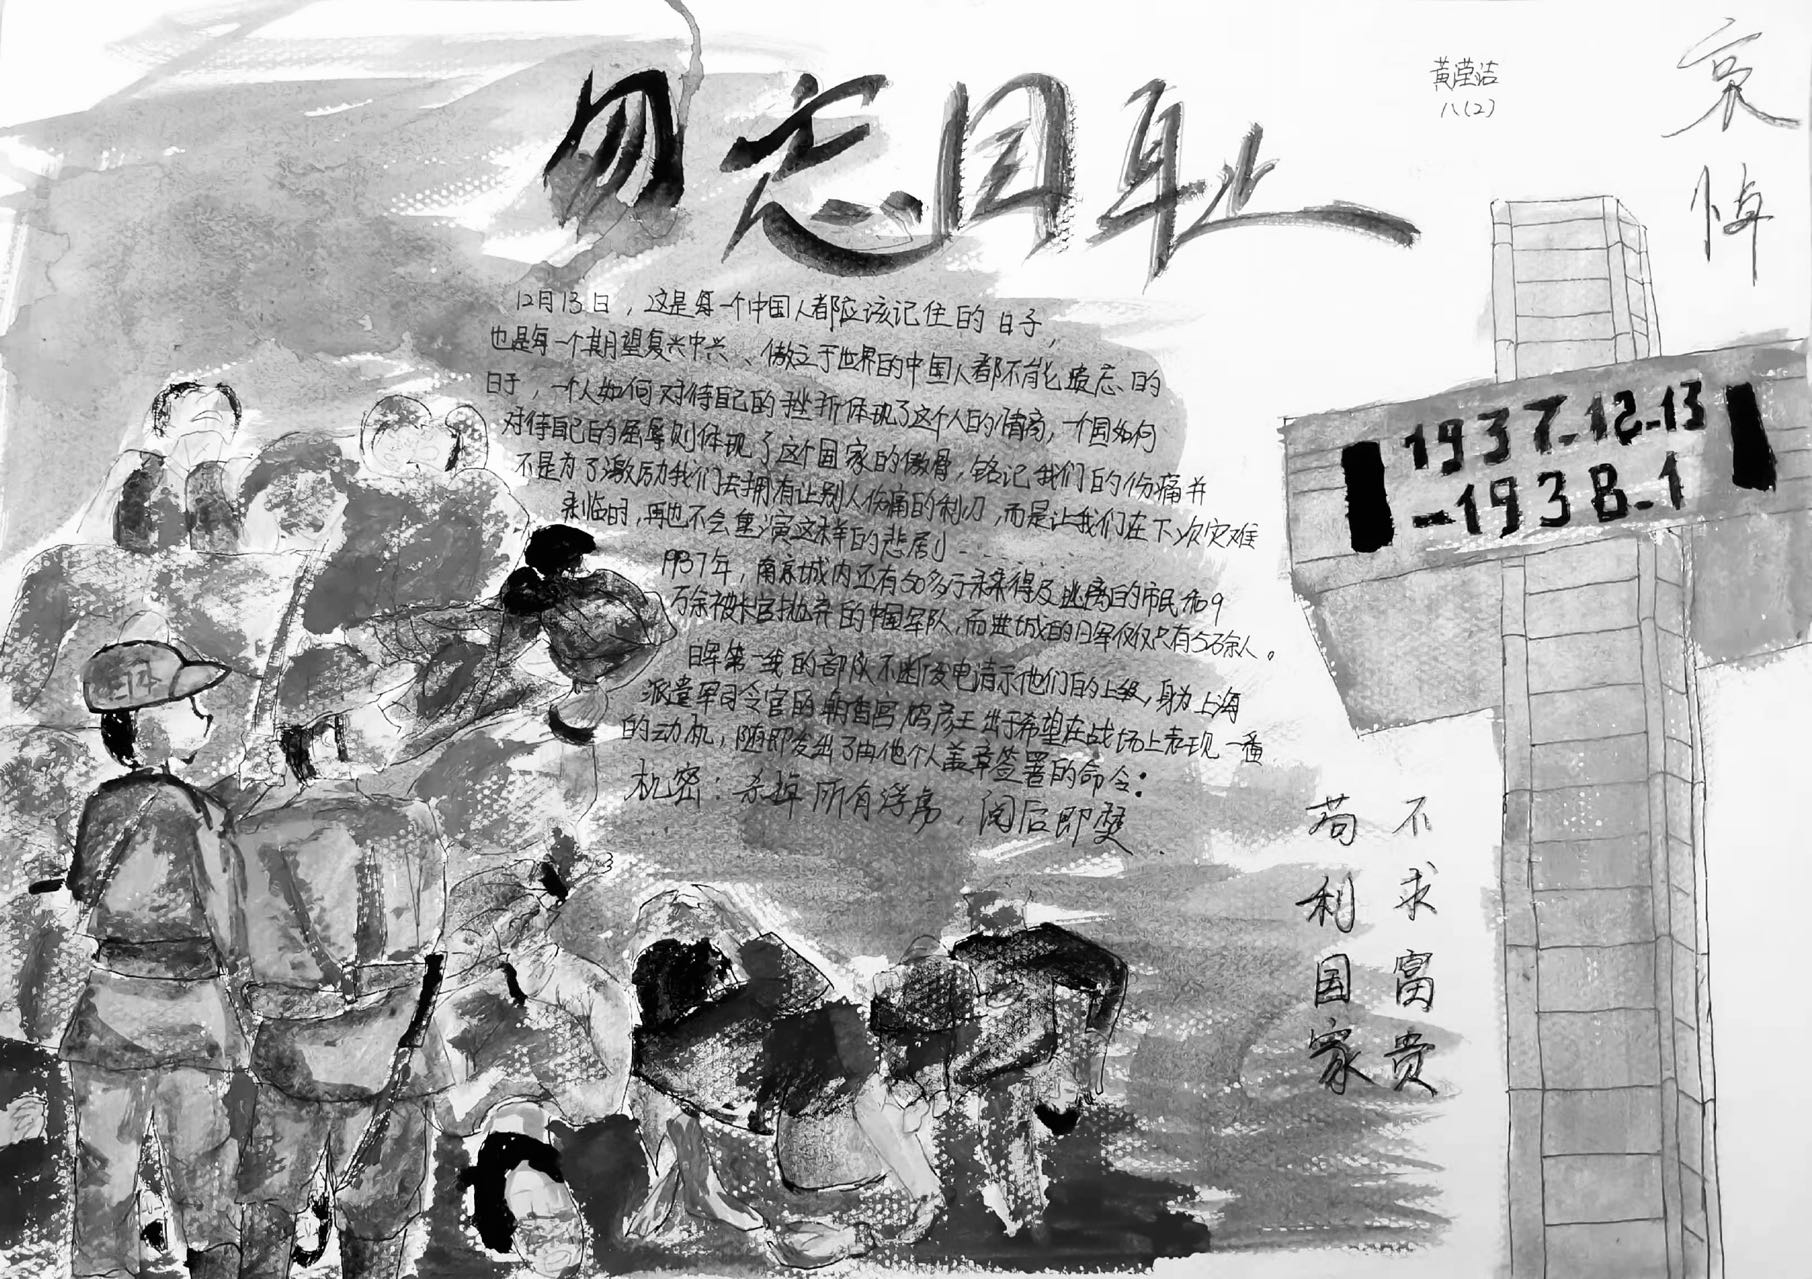 勿忘国耻
黄滢洁
八(2)
哀悼
12月13日，这是每一个中国人都应该记住的日子，
也是每一个期望复兴中兴、傲立于世界的中国人都不能遗忘的
日子，一个人如何对待自己的挫折体现了这个人的情商，一个国如何
对待自己的屈辱则体现了这个国家的傲骨，铭记我们的伤痛并
不是为了激励我们去拥有让别人伤痛的利刃，而是让我们在下次灾难
来临时，再也不会重演这样的悲剧......
1937年，南京城内还有50多万未来得及逃离的市民和9
万余被长官抛弃的中国军队，而进城的日军仅仅只有5万余人。
日军第一线的部队不断发电请示他们的上级，身为上海
派遣军司令官的朝香宫鸠彦王出于希望在战场上表现一番
的动机，随即发出了由他个人盖章签署的命令：
机密：杀掉所有俘虏，阅后即焚
1937.12.13
-1938.1
不求富贵
苟利国家
日本